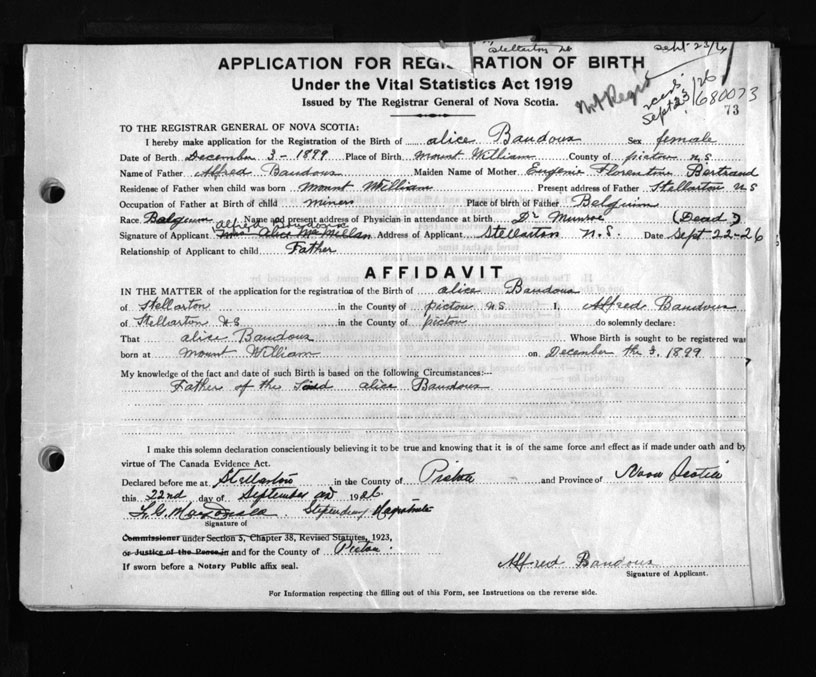 Stellarton NS Sept 23/26
APPLICATION FOR REGIS RATION OF BIRTH
Under the Vital Statistics Act 1919
Issued by The Registrar General of Nova Scotia.
Not Regis
Sept 23/26
680073
73
TO THE REGISTRAR GENERAL OF NOVA SCOTIA:
I hereby make application for the Registration of the Birth of alice Baudoux Sex female
Date of Birth December 3 - 1899 Place of Birth Mount William County of pictou N.S
Name of Father Alfred Baudoux Maiden Name of Mother Eugenie Florentine Bertrand
Residense of Father when child was born Mount William Present address of Father Stellarton N S
Occupation of Father at Birth of child miner Place of birth of Father Belguim
Race Belguim Name and present address of Physician in attendance at birth Dr Munroe (Dead)
Alfred Baudoux
Signature of Applicant Mrs Alice McMillan Address of Applicant Stellarton N.S. Date Sept 22-26
Relationship of Applicant to child Father
AFFIDAVIT
IN THE MATTER of the application for the registration of the Birth of alice Baudoux
of Stellarton in the County of pictou N.S I, Alfred Baudoux
of Stellarton N.S in the County of pictou do solemnly declare:
That alice Baudoux Whose Birth is sought to be registered was
born at Mount William on December the 3, 1899
My knowledge of the fact and date of such Birth is based on the following Circumstances:—
Father of the Said alice Baudoux
I make this solemn declaration conscientiously believing it to be true and knowing that it is of the same force and effect as if made under oath and by
virtue of The Canada Evidence Act.
Declared before me at Stellarton in the County of Pictou and Province of Nova Scotia
this 22nd day of September AD 1926.
Stipendiary Magistrate
Signature of
Commissioner under Section 5, Chapter 38, Revised Statutes, 1923,
or Justice of the Peace in and for the County of Pictou.
If sworn before a Notary Public affix seal.
Alfred Baudoux
Signature of Applicant.
For Information respecting the filling out of this Form, see Instructions on the reverse side.